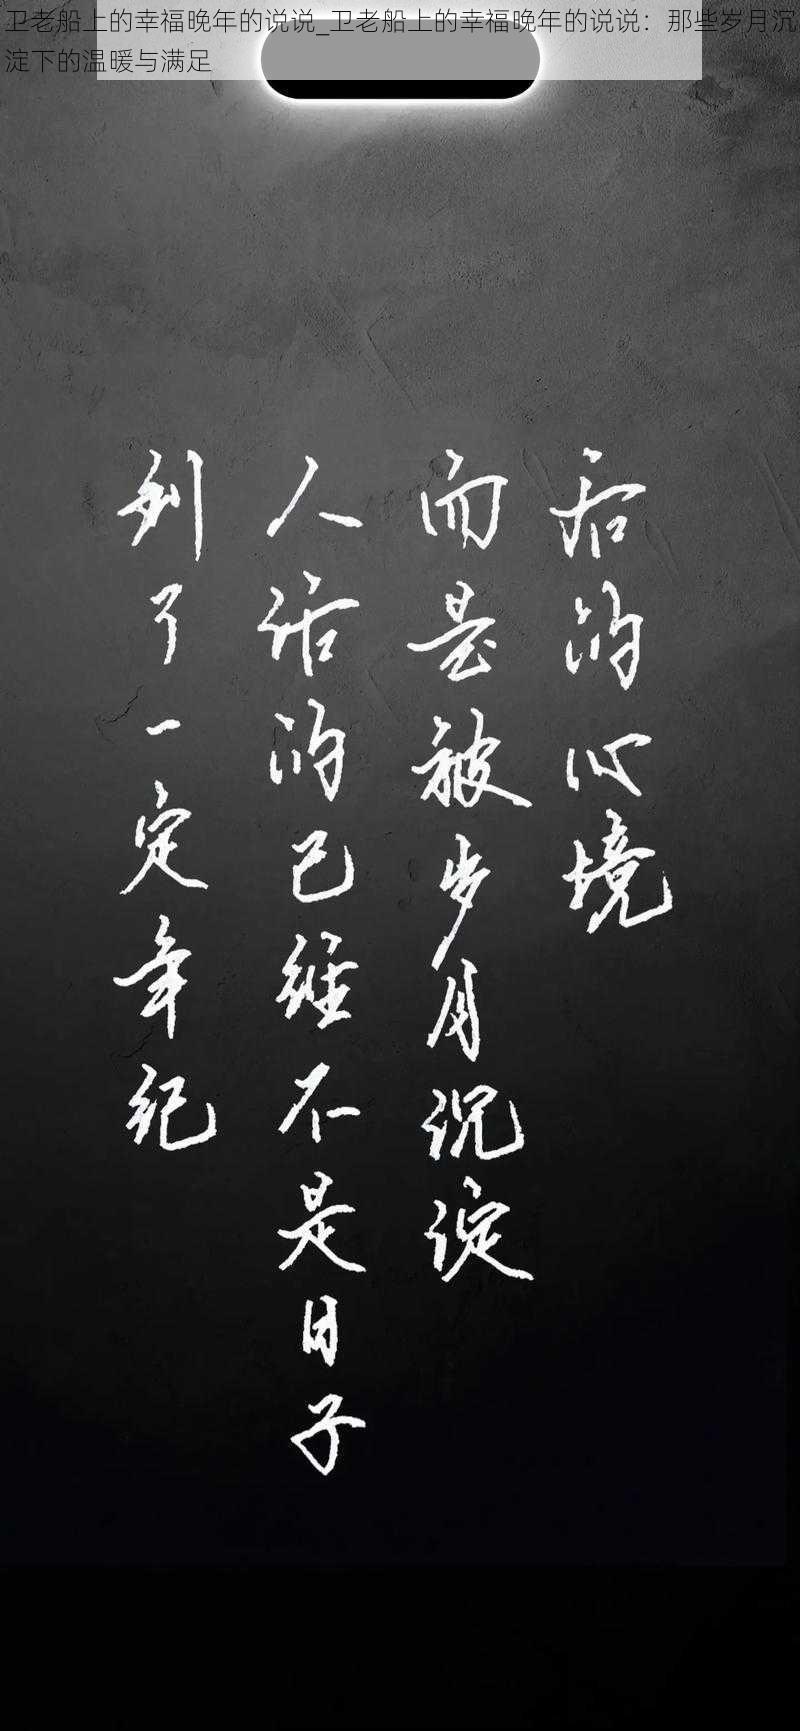 卫老船上的幸福晚年的说说_卫老船上的幸福晚年的说说：那些岁月沉
淀下的温暖与满足
到了一定年纪
人活的已经不是日子
而是被岁月沉淀
后的心境